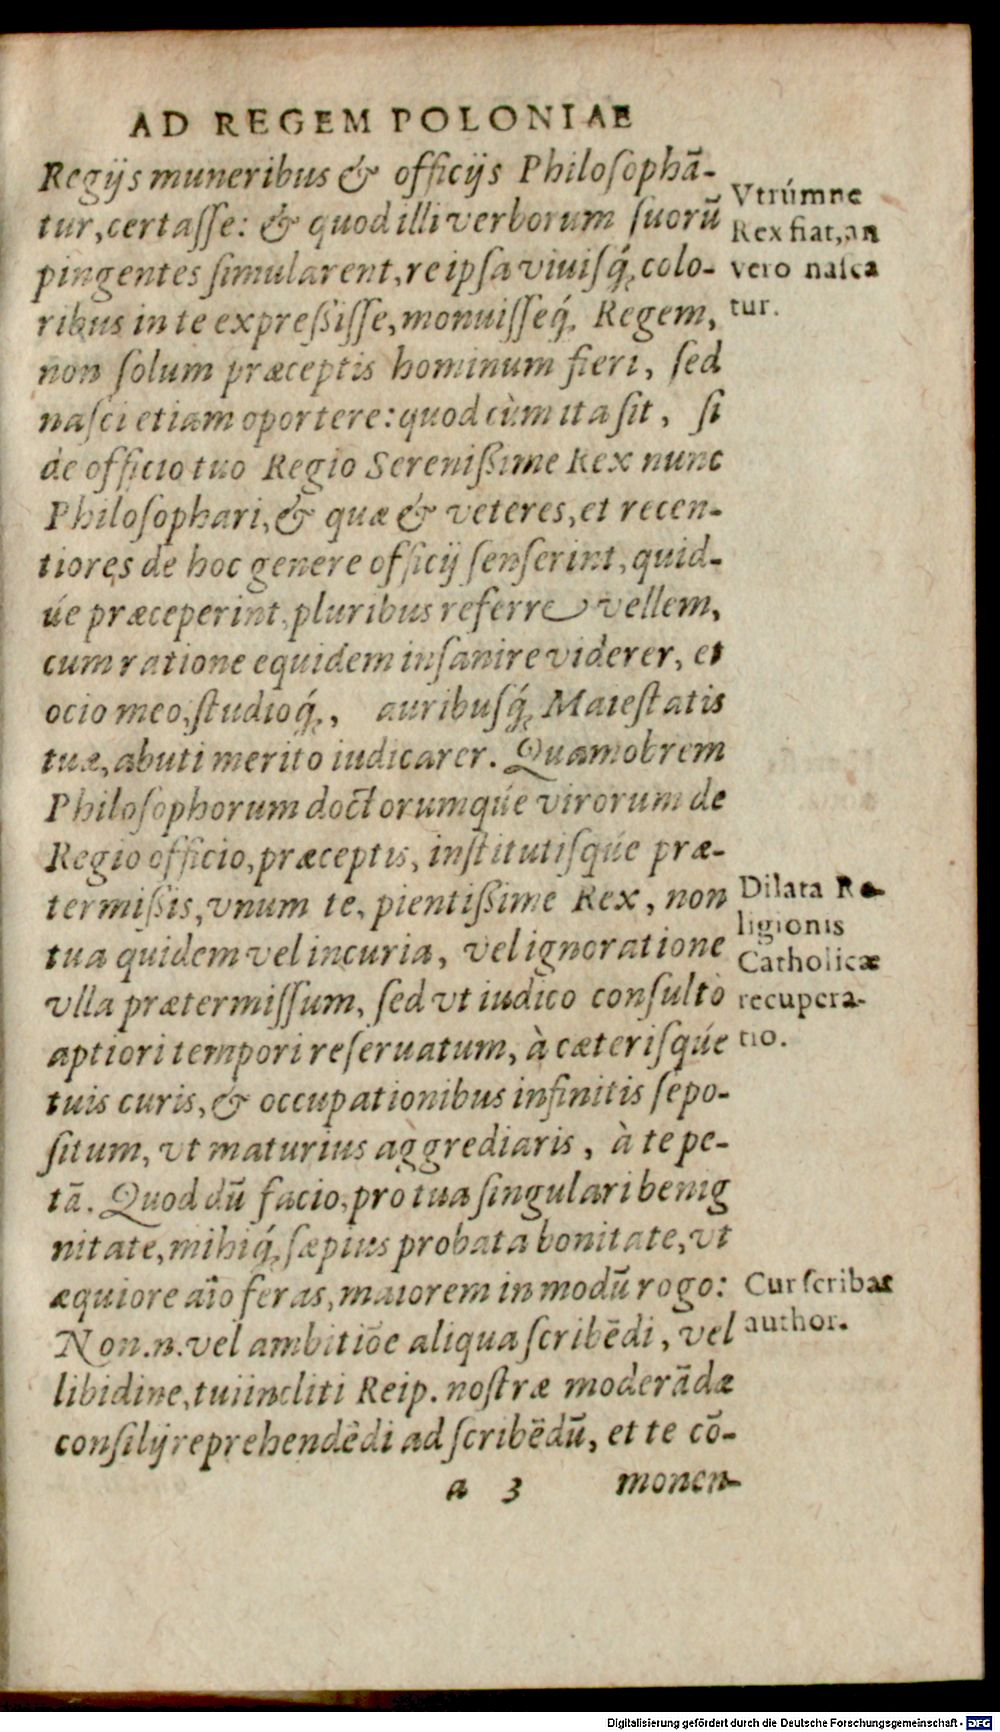 AD REGEM POLONIAE
Regijs muneribus & officijs Philosophā-
tur, certasse: & quod illi verborum suorū
pingentes simularent, re ipsa viuisq́; colo-
ribus in te expreßisse, monuisseq́; Regem,
non solum præceptis hominum fieri, sed
nasci etiam oportere: quod cùm ita sit, si
de officio tuo Regio Serenißime Rex nunc
Philosophari, & quæ & veteres, et recen-
tiores de hoc genere officij senserint, quid-
úe præceperint, pluribus referre vellem,
cum ratione equidem insanire viderer, et
ocio meo, studioq́;, auribusq́; Maiestatis
tuæ, abuti merito iudicarer. Quamobrem
Philosophorum doctorumqúe virorum de
Regio officio, præceptis, institutisqúe præ-
termißis, vnum te, pientißime Rex, non
tua quidem vel incuria, vel ignoratione
vlla prætermissum, sed vt iudico consultò
aptiori tempori reseruatum, à cæterisqúe
tuis curis, & occupationibus infinitis sepo-
situm, vt maturius aggrediaris, à te pe-
tā. Quod dū facio, pro tua singulari benig
nitate, mihiq́; sæpius probata bonitate, vt
æquiore aīo feras, maiorem in modū rogo:
Non .n. vel ambitiōe aliqua scribēdi, vel
libidine, tui incliti Reip. nostræ moderādæ
consilij reprehendēdi ad scribēdū, et te cō-
a 3 monen-
Vtrúmne
Rex fiat, an
vero nasca
tur.
Dilata Re-
ligionis
Catholicæ
recupera-
tio.
Cur scribat
author.
Digitalisierung gefördert durch die Deutsche Forschungsgemeinschaft - DFG